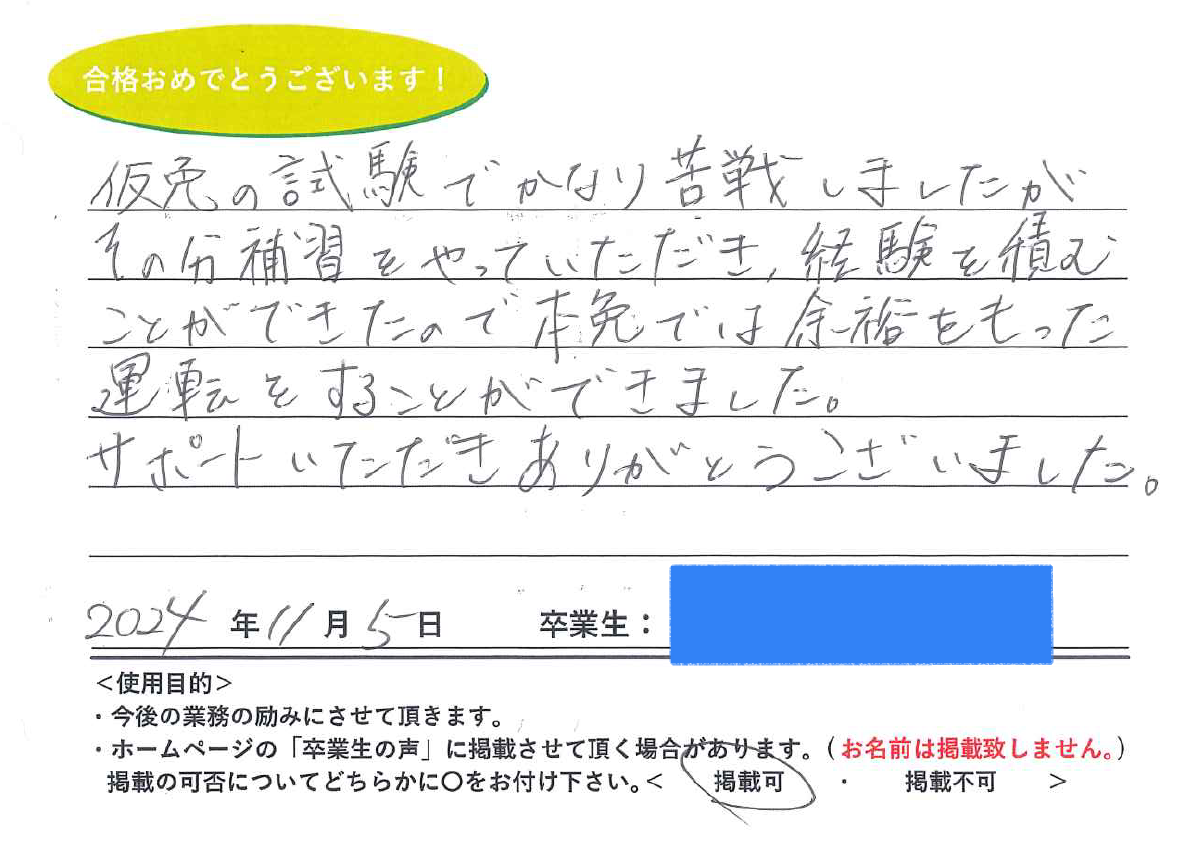 合格おめでとうございます！
仮免の試験でかなり苦戦しましたが
その分補習をやっていただき、経験を積む
ことができたので本免では余裕をもった
運転をすることができました。
サポートいただきありがとうございました。
2024年11月5日 卒業生：
＜使用目的＞
・今後の業務の励みにさせて頂きます。
・ホームページの「卒業生の声」に掲載させて頂く場合があります。（お名前は掲載致しません。）
掲載の可否についてどちらかに〇をお付け下さい。＜ 掲載可 ・ 掲載不可 ＞